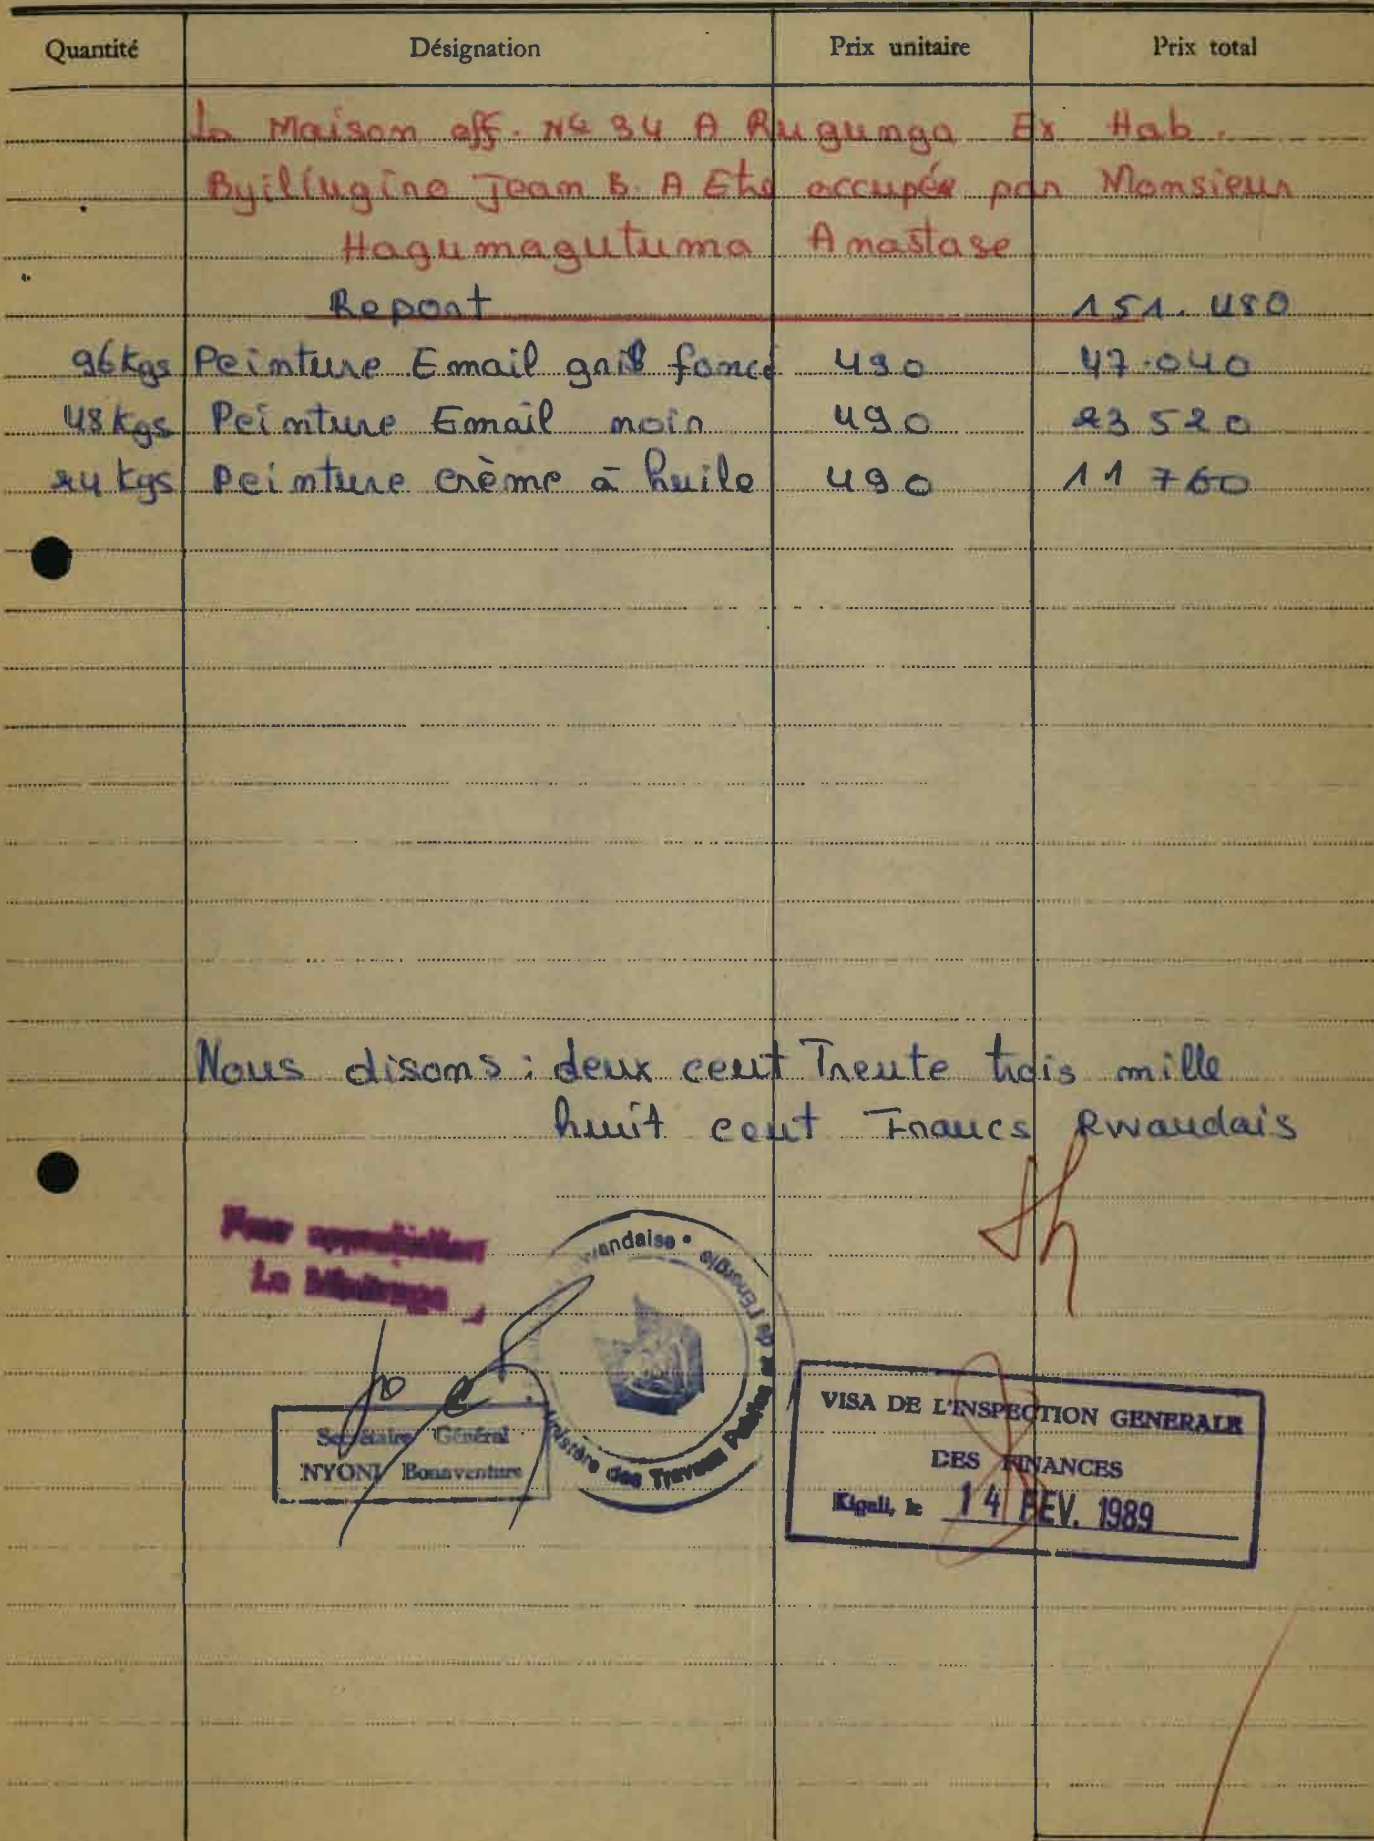 Quantité Désignation Prix unitaire Prix total
La Maison off. No 34 A Rugunga Ex Hab.
Byilingino Jean B. A Ete occupée par Monsieur
Hagumagutuma Anastase
Report 151.480
96 kgs Peinture Email gris foncé 490 47.040
48 kgs Peinture Email noir 490 23 520
24 kgs Peinture crème à huile 490 11 760
Nous disons : deux cent Trente trois mille
huit cent Francs Rwandais
Pour approbation
Le Ministre
Secrétaire Général
NYONI Bonaventure
wandaise • Ministère des Travaux Publics et de l'Energie
VISA DE L'INSPECTION GENERALE
DES FINANCES
Kigali, le 14 FEV. 1989